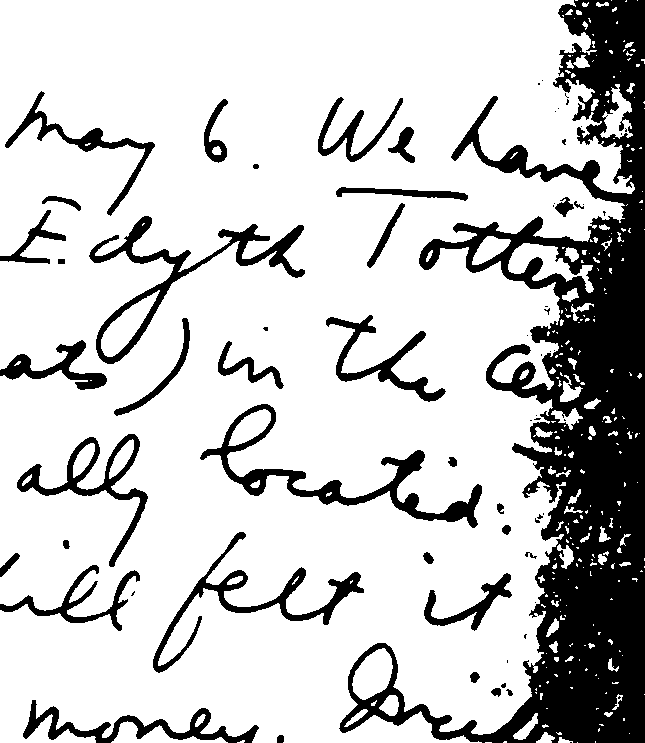 may 6. We have
Edyth Totten
ats) in the
ally located.
ill felt it
money.